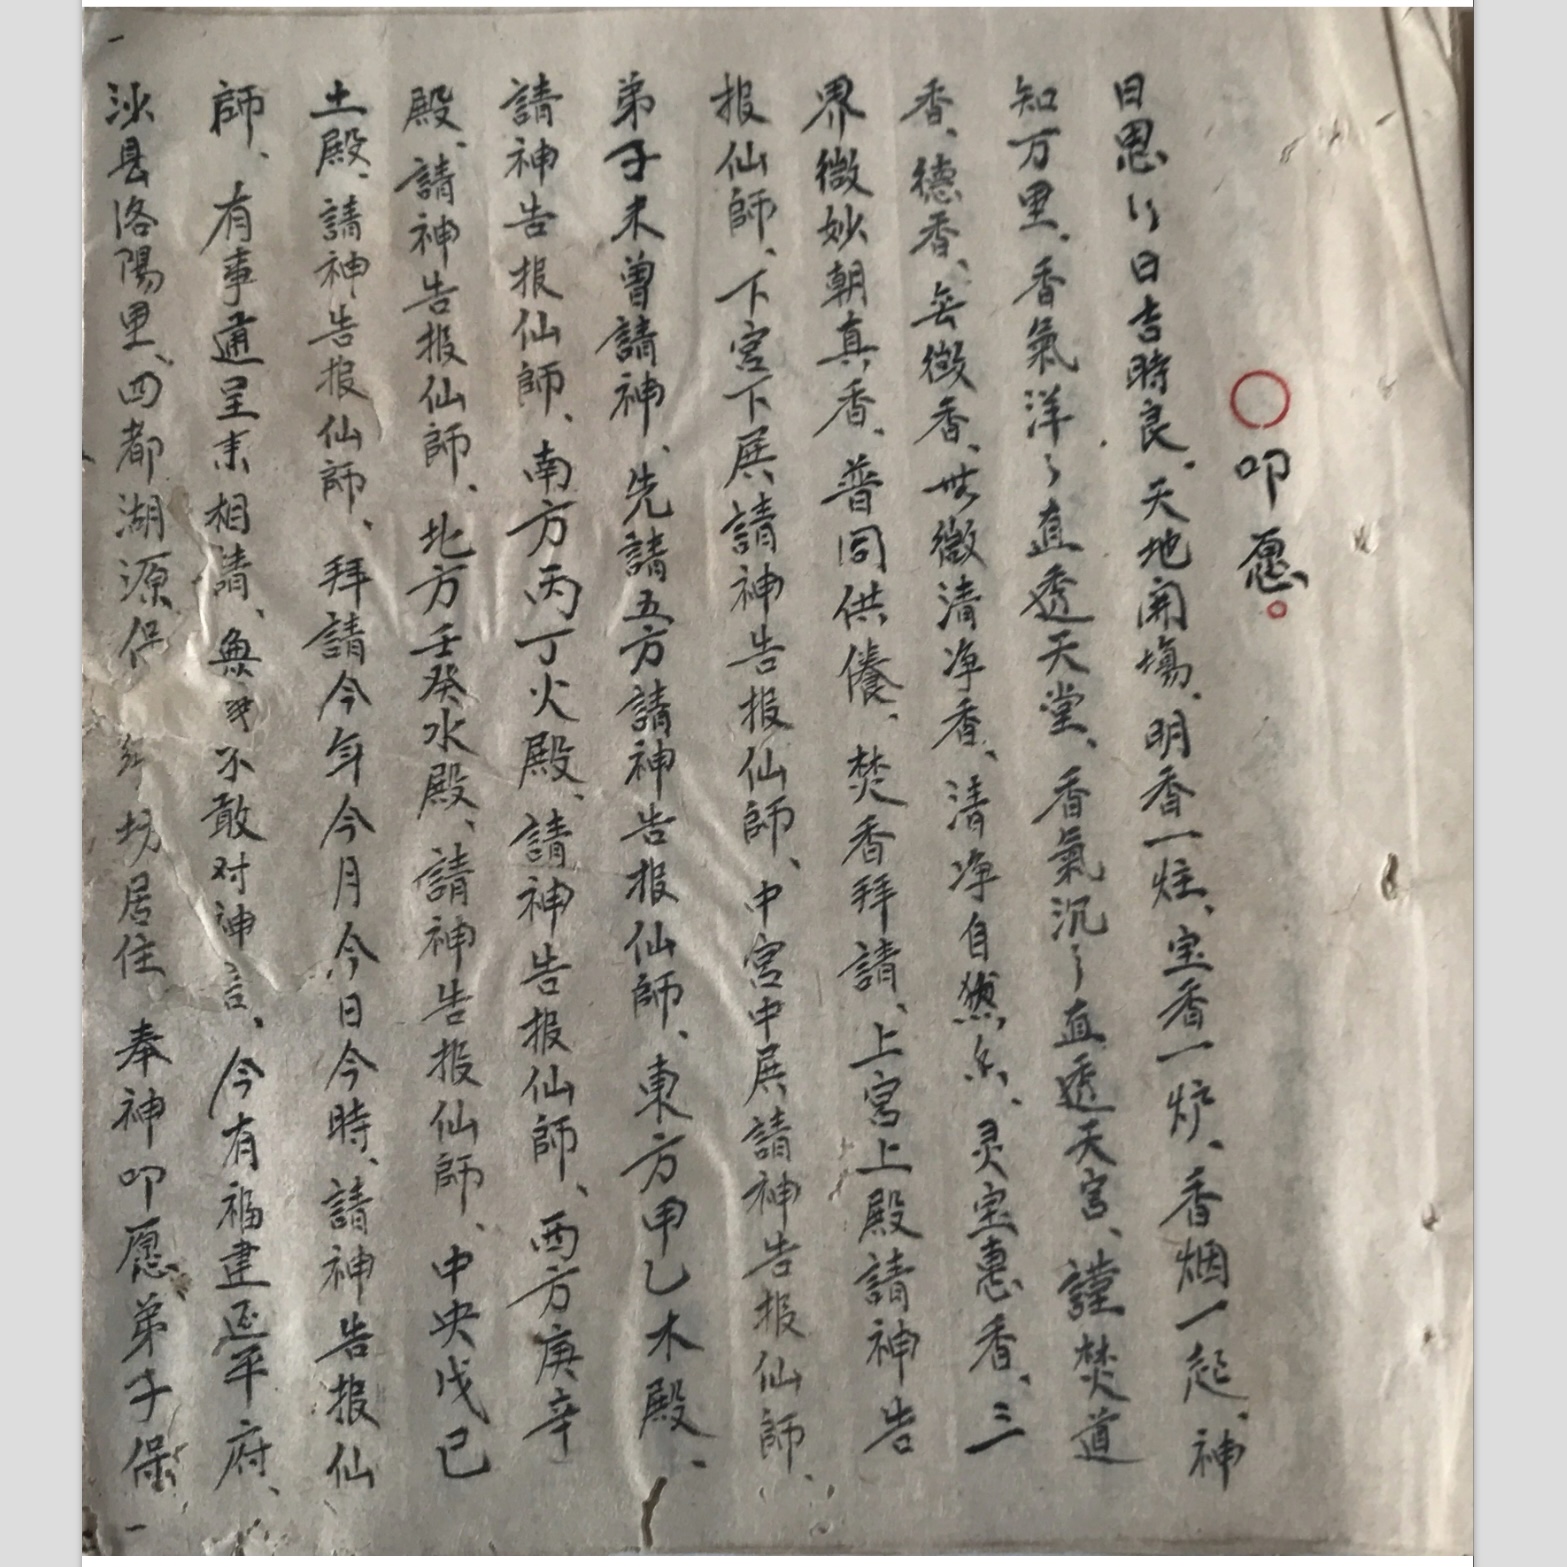 叩愿
日恩〻日吉時良、天地開塲、明香一炷、宝香一炉、香烟一起、神
知万里、香氣洋〻直透天堂、香氣沉〻直透天宫、謹焚道
香、德香、無微香、世微清净香、清净自然香、灵宝惠香、三
界微妙朝真香、普同供養、焚香拜請、上宫上殿請神告
报仙師、下宫下展請神告报仙師、中宫中展請神告报仙師、
弟子未曽請神、先請五方請神告报仙師、東方甲乙木殿、
請神告报仙師、南方丙丁火殿、請神告报仙師、西方庚辛
殿、請神告报仙師、北方壬癸水殿、請神告报仙師、中央戊己
土殿、請神告报仙師、拜請今年今月今日今時、請神告报仙
師、有事通呈来相請、無事不敢对神言、今有福建延平府、
沙县洛陽里、四都湖源保 坊居住 奉神叩愿弟子保